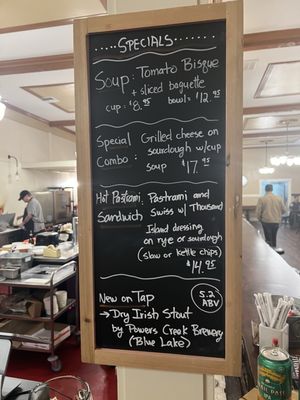 SPECIALS
Soup: Tomato Bisque
+ sliced baguette
cup: $8.95 bowl: $12.95
Special Combo: Grilled cheese on
sourdough w/cup
soup $17.95
Hot Pastrami Sandwich: Pastrami and
Swiss w/ Thousand
Island dressing
on rye or sourdough
(slaw or kettle chips)
$14.95
New on Tap
5.2
ABV
→ Dry Irish Stout
by Powers Creek Brewery
(Blue Lake)